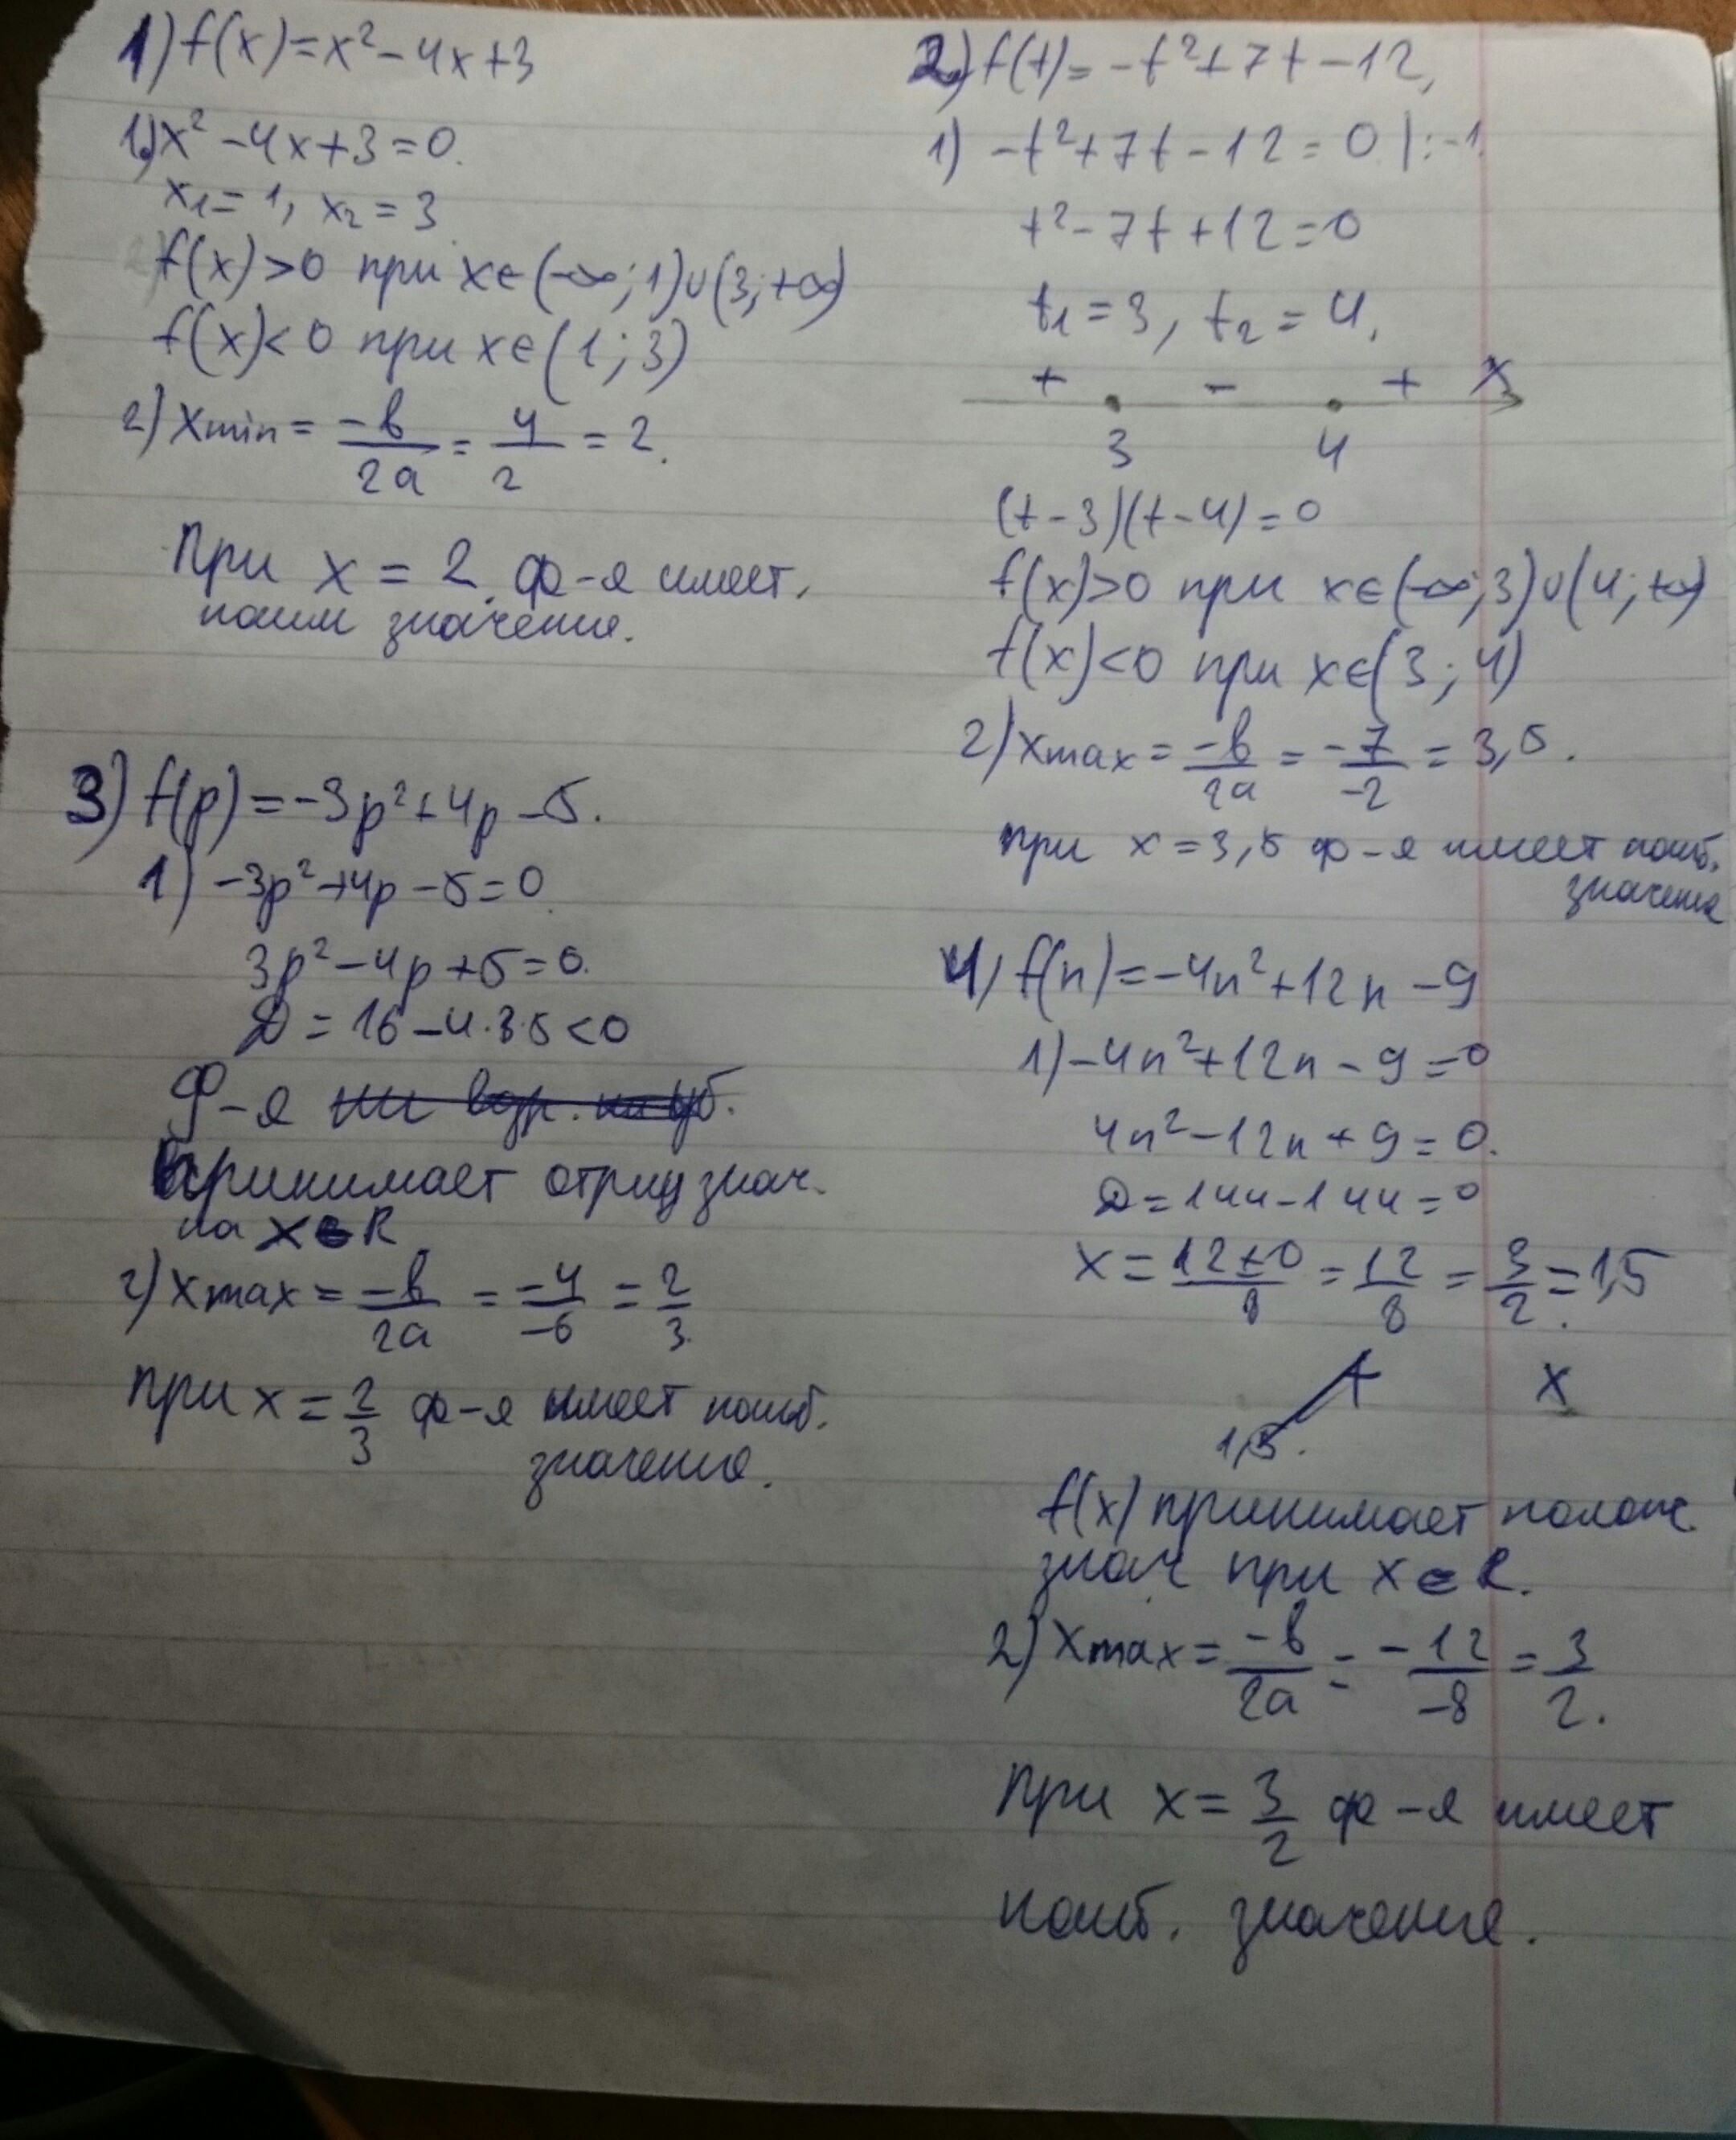 1) f(x)=x²-4x+3
1) x²-4x+3=0.
x₁=1, x₂=3.
f(x)>0 при x∈(-∞;1)∪(3;+∞)
f(x)<0 при x∈(1;3)
2) xmin = -b/2a = 4/2 = 2.
При x=2 ф-я имеет
наим значение.
3) f(p)=-3p²+4p-5.
1) -3p²+4p-5=0
3p²-4p+5=0.
D=16-4·3·5<0
Ф-я ни возр. ни уб.
принимает отриц знач.
на x∈R
2) xmax = -b/2a = -4/-6 = 2/3.
при x=2/3 ф-я имеет наиб.
значение.
2) f(t)=-t²+7t-12,
1) -t²+7t-12=0 |:-1
t²-7t+12=0
t₁=3, t₂=4.
+ - + x
3 4
(t-3)(t-4)=0
f(x)>0 при x∈(-∞;3)∪(4;+∞)
f(x)<0 при x∈(3;4)
2) xmax = -b/2a = -7/-2 = 3,5.
при x=3,5 ф-я имеет наиб.
значение
4) f(n)=-4n²+12n-9
1) -4n²+12n-9=0
4n²-12n+9=0.
D=144-144=0
x = 12±0/8 = 12/8 = 3/2 = 1,5
+ x
1,5.
f(x) принимает полож.
знач при x∈R.
2) xmax = -b/2a = -12/-8 = 3/2.
При x=3/2 ф-я имеет
наиб. значение.